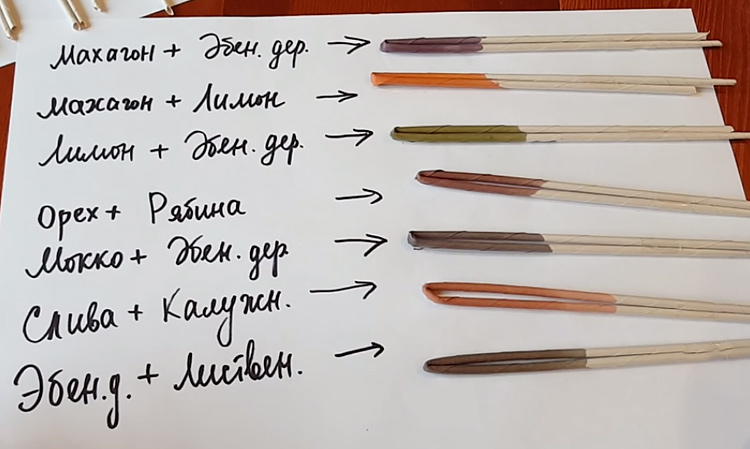 Махагон + Эбен. дер. →
Махагон + Лимон →
Лимон + Эбен. дер. →
Орех + Рябина →
Мокко + Эбен. дер →
Слива + Калужн. →
Эбен.д. + Листвен. →